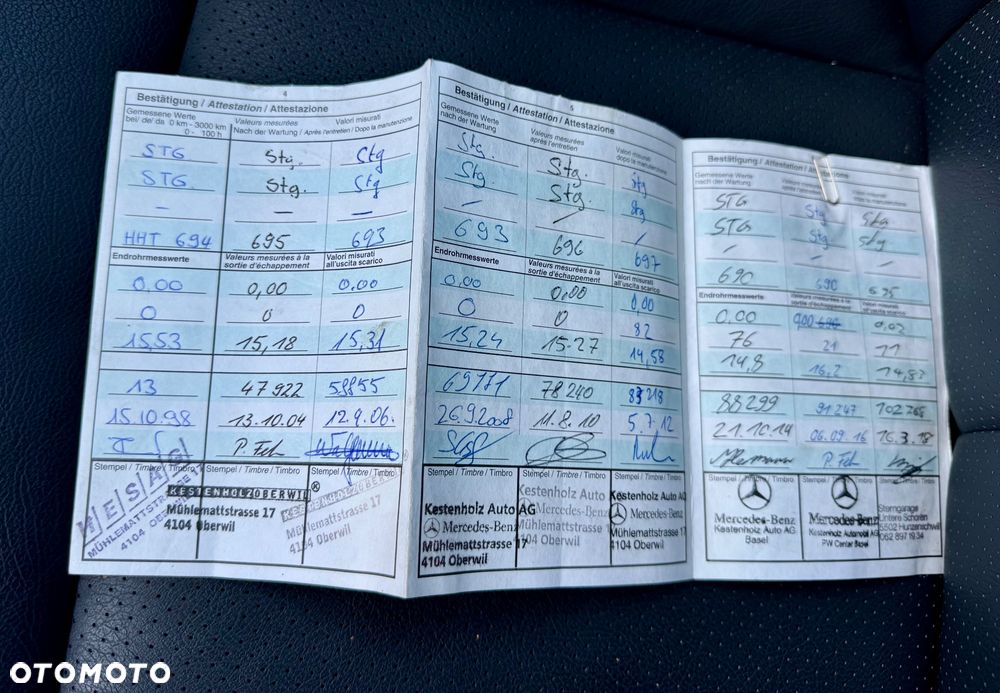 4
Bestätigung / Attestation / Attestazione
Gemessene Werte
bei/ de/ da 0 km - 3000 km
0 - 100 h
Valeurs mesurées
Valori misurati
Nach der Wartung / Après l'entretien / Dopo la manutenzione
STG Stg. Stg
STG Stg. Stg
— — —
HHT 694 695 693
Endrohrmesswerte
Valeurs mesurées à la
sortie d'échappement
Valori misurati
all'uscita scarico
0.00 0,00 0.00
0 0 0
15,53 15,18 15,31
13 47922 58855
15.10.98 13.10.04 12.9.06.
P. Feh
Stempel / Timbre / Timbro
Stempel / Timbre / Timbro
Stempel / Timbre / Timbro
WESAG
MÜHLEMATTSTRASSE 17
4104 OBERWIL
KESTENHOLZOBERWIL®
Mühlemattstrasse 17
4104 Oberwil
KESTENHOLZOBERWIL
Mühlemattstrasse 17
4104 Oberwil
5
Bestätigung / Attestation / Attestazione
Gemessene Werte
nach der Wartung
Valeurs mesurées
après l'entretien
Valori misurati
dopo la manutenzione
Stg. Stg. Stg
Stg. Stg. Stg
— / /
693 696 697
Endrohrmesswerte
Valeurs mesurées à la
sortie d'échappement
Valori misurati
all'uscita scarico
0.00 0.00 0,00
0 0 82
15,24 15.27 14,58
69171 78240 83218
26.9.2008 11.8.10 5.7.12
Stempel / Timbre / Timbro
Stempel / Timbre / Timbro
Stempel / Timbre / Timbro
Kestenholz Auto AG
Mercedes-Benz
Mühlemattstrasse 17
4104 Oberwil
Kestenholz Auto
Mercedes-Benz
Mühlemattstrasse 17
4104 Oberwil
Kestenholz Auto AG
Mercedes-Benz
Mühlemattstrasse 17
4104 Oberwil
Bestätigung / Attestation / Attestazione
Gemessene Werte
nach der Wartung
Valeurs mesurées
après l'entretien
Valori misurati
STG Stg. Stg
STG Stg Stg
— / /
690 690 695
Endrohrmesswerte
Valeurs mesurées à la
sortie d'échappement
Valori misurati
all'uscita scarico
0.00 0,00 690 0.02
76 21 11
14,8 16,2 14,83
88299 91247 102768
21.10.14 06.09.16 16.3.18
P. Feh
Stempel / Timbre / Timbro
Stempel / Timbre / Timbro
Stempel / Timbre / Timbro
Mercedes-Benz
Kestenholz Auto AG
Basel
Mercedes-Benz
Kestenholz Automobil AG
PW Center Basel
Sterngarage
Untere Schoren
5502 Hunzenschwil
062 897 19 34
OTOMOTO